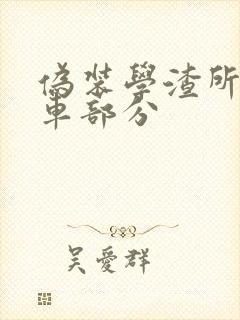 偽裝學渣所
車部分
吴愛群